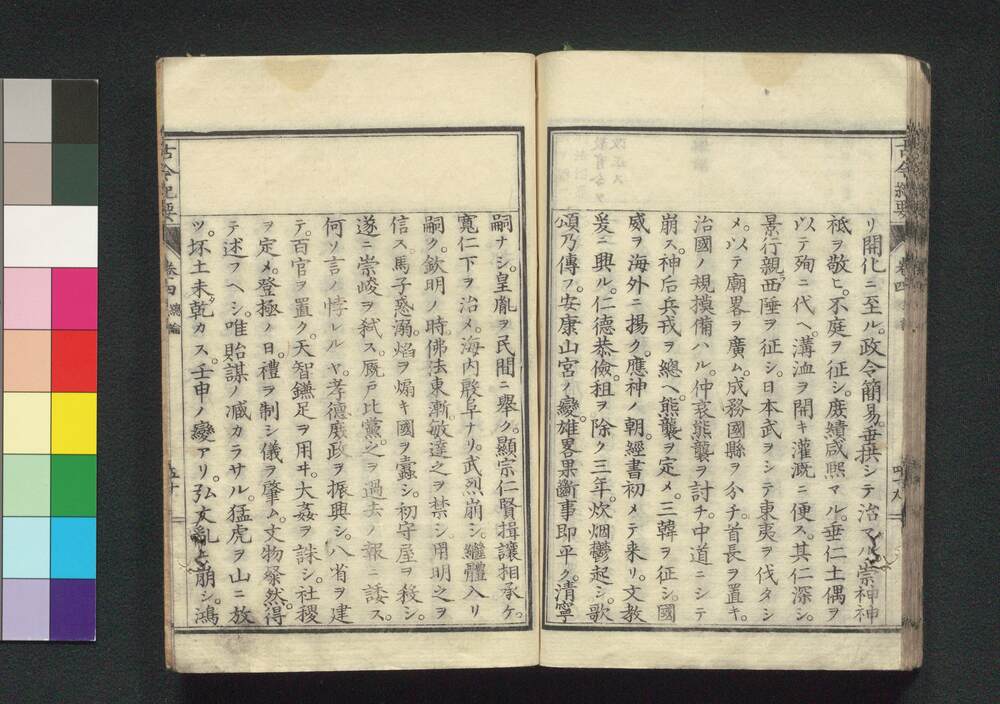 リ開化ニ至ル。政令簡易。垂拱シテ治マル。崇神神
祇ヲ敬ヒ。不庭ヲ征シ。庶績咸熙マル。垂仁土偶ヲ
以テ殉ニ代ヘ。溝洫ヲ開キ灌漑ニ便ス。其仁深シ。
景行親ラ西陲ヲ征シ。日本武ヲシテ東夷ヲ伐タシ
メ。以テ廟畧ヲ廣ム。成務國縣ヲ分チ。首長ヲ置キ。
治國ノ規摸備ハル。仲哀熊襲ヲ討チ。中道ニシテ
崩ス。神后兵戎ヲ總ヘ。熊襲ヲ定メ。三韓ヲ征シ。國
威ヲ海外ニ揚ク。應神ノ朝。經書初メテ来リ。文教
爰ニ興ル。仁德恭儉。租ヲ除ク三年。炊烟鬱起シ。歌
頌乃傳フ。安康山宮ノ變。雄畧果斷事即平ク。清寧
嗣ナシ。皇胤ヲ民間ニ舉ク。顯宗仁賢揖讓相承ケ。
寬仁下ヲ治メ。海内殷阜ナリ。武烈崩シ。繼體入リ
嗣ク。欽明ノ時。佛法東漸。敏達之ヲ禁シ。用明之ヲ
信ス。馬子惑溺。焰ヲ煽キ國ヲ蠹シ。初守屋ヲ殺シ。
遂ニ崇峻ヲ弑ス。厩戸比黨。之ヲ過去ノ報ニ諉ス。
何ソ言ノ悖レルヤ。孝德庶政ヲ振興シ。八省ヲ建
テ。百官ヲ置ク。天智鎌足ヲ用ヰ。大姦ヲ誅シ。社稷
ヲ定メ。登極ノ日。禮ヲ制シ儀ヲ肇ム。文物粲然。得
テ述フヘシ。唯貽謀ノ減カラサル。猛虎ヲ山ニ放
ツ。坏土未乾カス。壬申ノ變アリ。弘文亂ニ崩シ。鴻
古今紀要
卷四
總論
五十